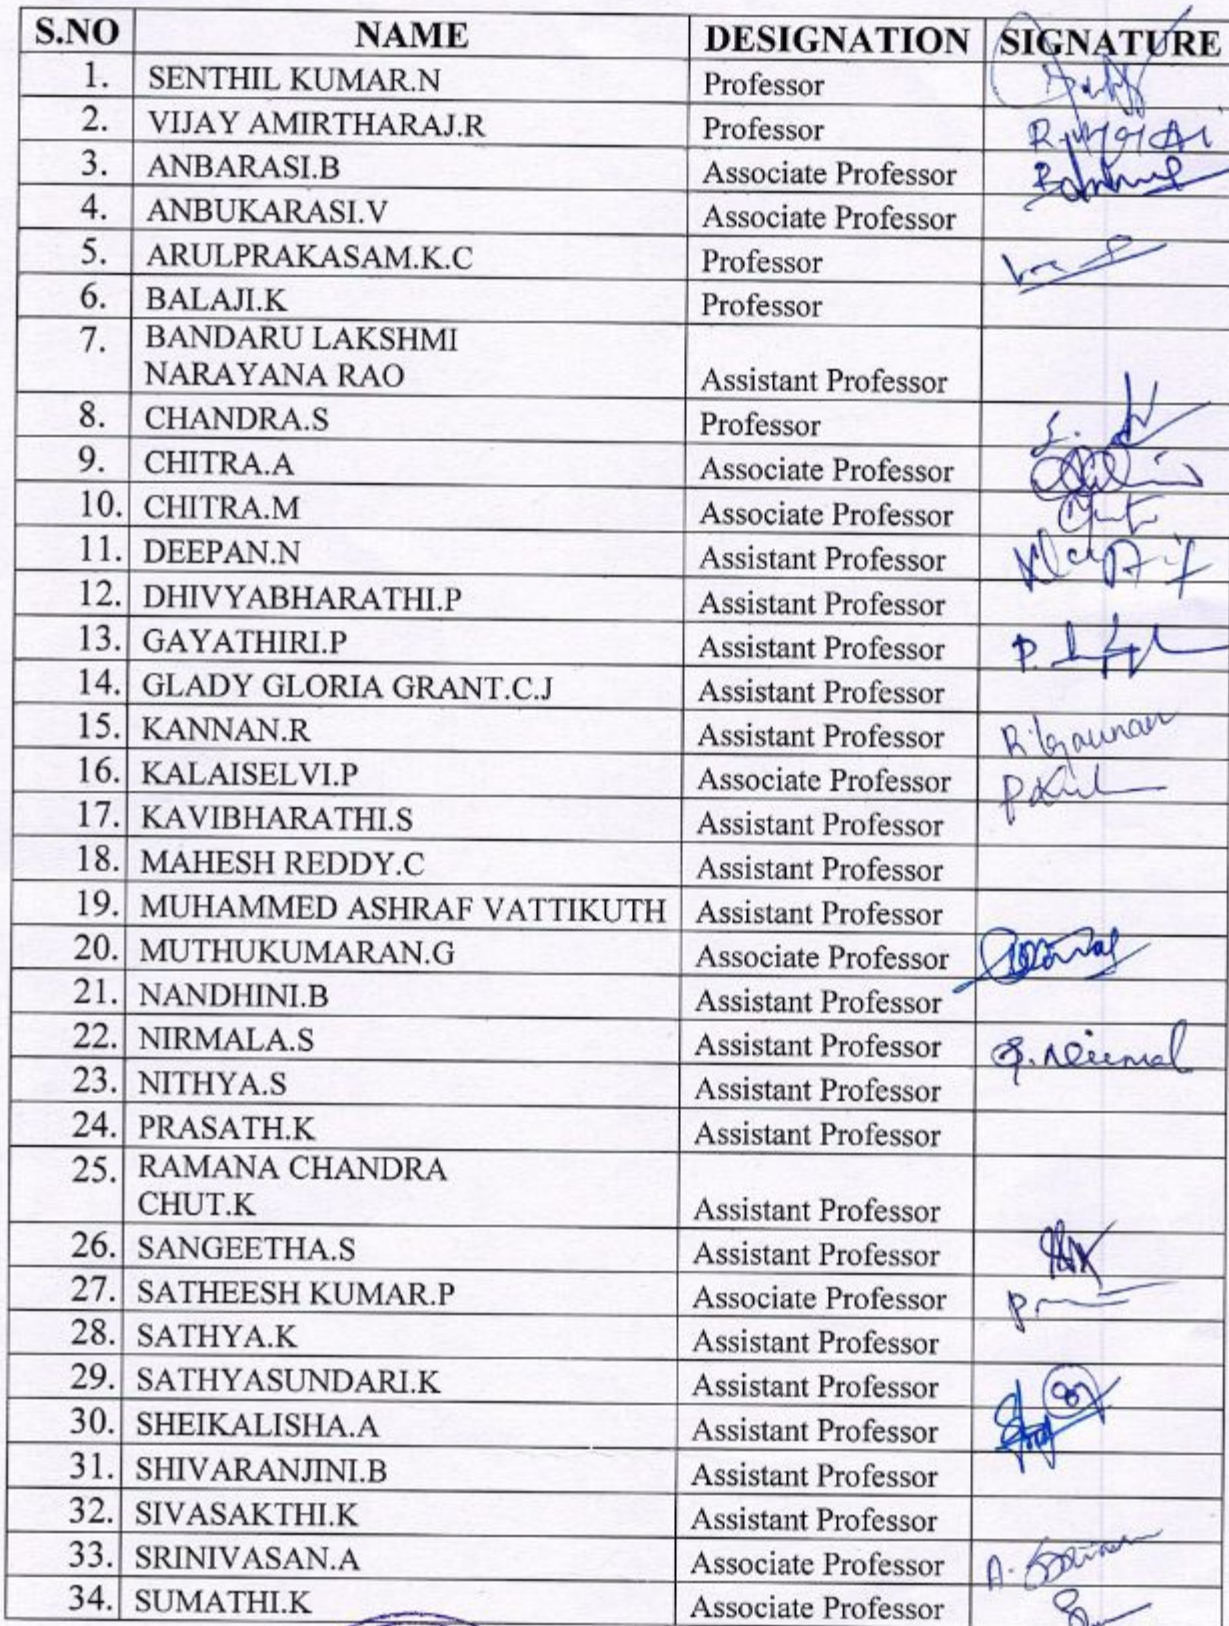 S.NO NAME DESIGNATION SIGNATURE
1. SENTHIL KUMAR.N Professor
2. VIJAY AMIRTHARAJ.R Professor
3. ANBARASI.B Associate Professor
4. ANBUKARASI.V Associate Professor
5. ARULPRAKASAM.K.C Professor
6. BALAJI.K Professor
7. BANDARU LAKSHMI
NARAYANA RAO Assistant Professor
8. CHANDRA.S Professor
9. CHITRA.A Associate Professor
10. CHITRA.M Associate Professor
11. DEEPAN.N Assistant Professor
12. DHIVYABHARATHI.P Assistant Professor
13. GAYATHIRI.P Assistant Professor
14. GLADY GLORIA GRANT.C.J Assistant Professor
15. KANNAN.R Assistant Professor
16. KALAISELVI.P Associate Professor
17. KAVIBHARATHI.S Assistant Professor
18. MAHESH REDDY.C Assistant Professor
19. MUHAMMED ASHRAF VATTIKUTH Assistant Professor
20. MUTHUKUMARAN.G Associate Professor
21. NANDHINI.B Assistant Professor
22. NIRMALA.S Assistant Professor
23. NITHYA.S Assistant Professor
24. PRASATH.K Assistant Professor
25. RAMANA CHANDRA
CHUT.K Assistant Professor
26. SANGEETHA.S Assistant Professor
27. SATHEESH KUMAR.P Associate Professor
28. SATHYA.K Assistant Professor
29. SATHYASUNDARI.K Assistant Professor
30. SHEIKALISHA.A Assistant Professor
31. SHIVARANJINI.B Assistant Professor
32. SIVASAKTHI.K Assistant Professor
33. SRINIVASAN.A Associate Professor
34. SUMATHI.K Associate Professor